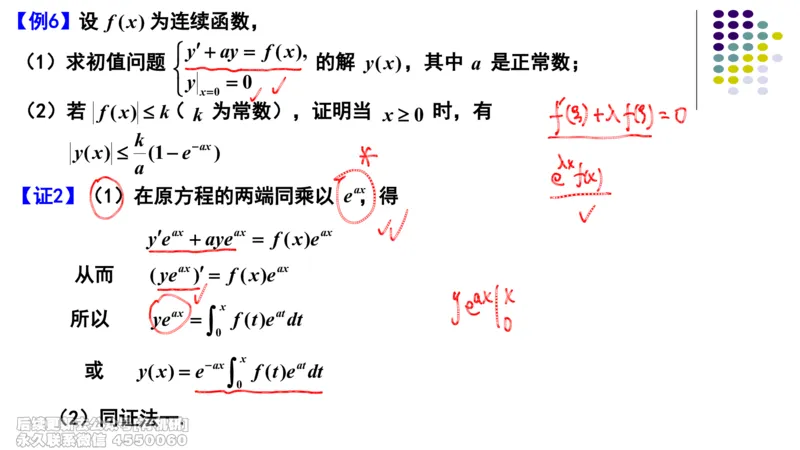 【例6】设 f(x) 为连续函数，
（1）求初值问题 { y′+ay = f(x), y|x=0 = 0 的解 y(x)，其中 a 是正常数；
（2）若 |f(x)| ≤ k（ k 为常数），证明当 x ≥ 0 时，有
|y(x)| ≤ k/a (1−e^{−ax})
f′(ξ)+λf(ξ)=0
e^{λx}f(x)
【证2】（1）在原方程的两端同乘以 e^{ax}，得
y′e^{ax} + aye^{ax} = f(x)e^{ax}
从而 (ye^{ax})′ = f(x)e^{ax}
ye^{ax}|_0^x
所以 ye^{ax} = ∫_0^x f(t)e^{at}dt
或 y(x) = e^{−ax}∫_0^x f(t)e^{at}dt
（2）同证法一.
永久联系微信 4550060